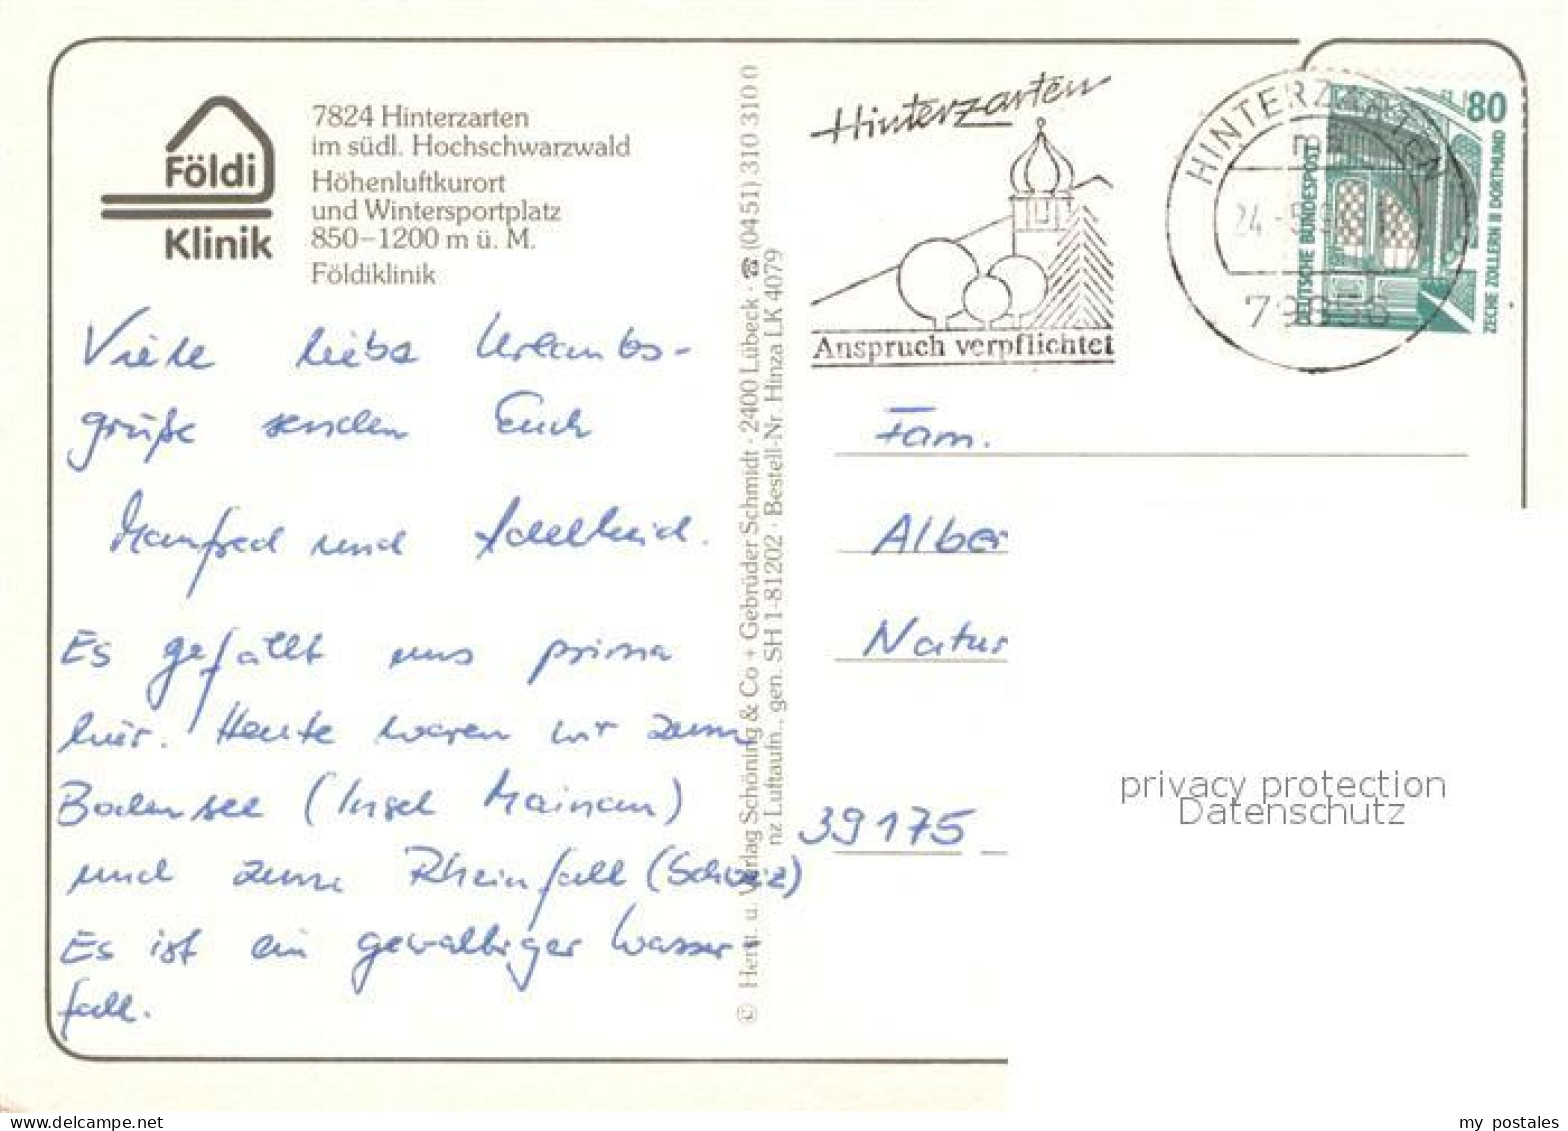 Földi
Klinik
7824 Hinterzarten
im südl. Hochschwarzwald
Höhenluftkurort
und Wintersportplatz
850–1200 m ü. M.
Földiklinik
Viele liebe Urlaubs-
grüße senden Euch
Manfred und Adelheid.
Es gefällt uns prima
hier. Heute waren wir zum
Bodensee (Insel Mainau)
und zum Rheinfall (Schweiz)
Es ist ein gewaltiger Wasser-
fall.
© Herst. u. Verlag Schöning & Co + Gebrüder Schmidt · 2400 Lübeck · ☎ (0451) 310 310 0
nz Luftaufn., gen. SH 1-81202 · Bestell-Nr. Hinza LK 4079
Hinterzarten
Anspruch verpflichtet
HINTERZARTEN
79856
80
DEUTSCHE BUNDESPOST
ZECHE ZOLLERN II DORTMUND
Fam.
Alber
Natur
39175
privacy protection
Datenschutz
my postales